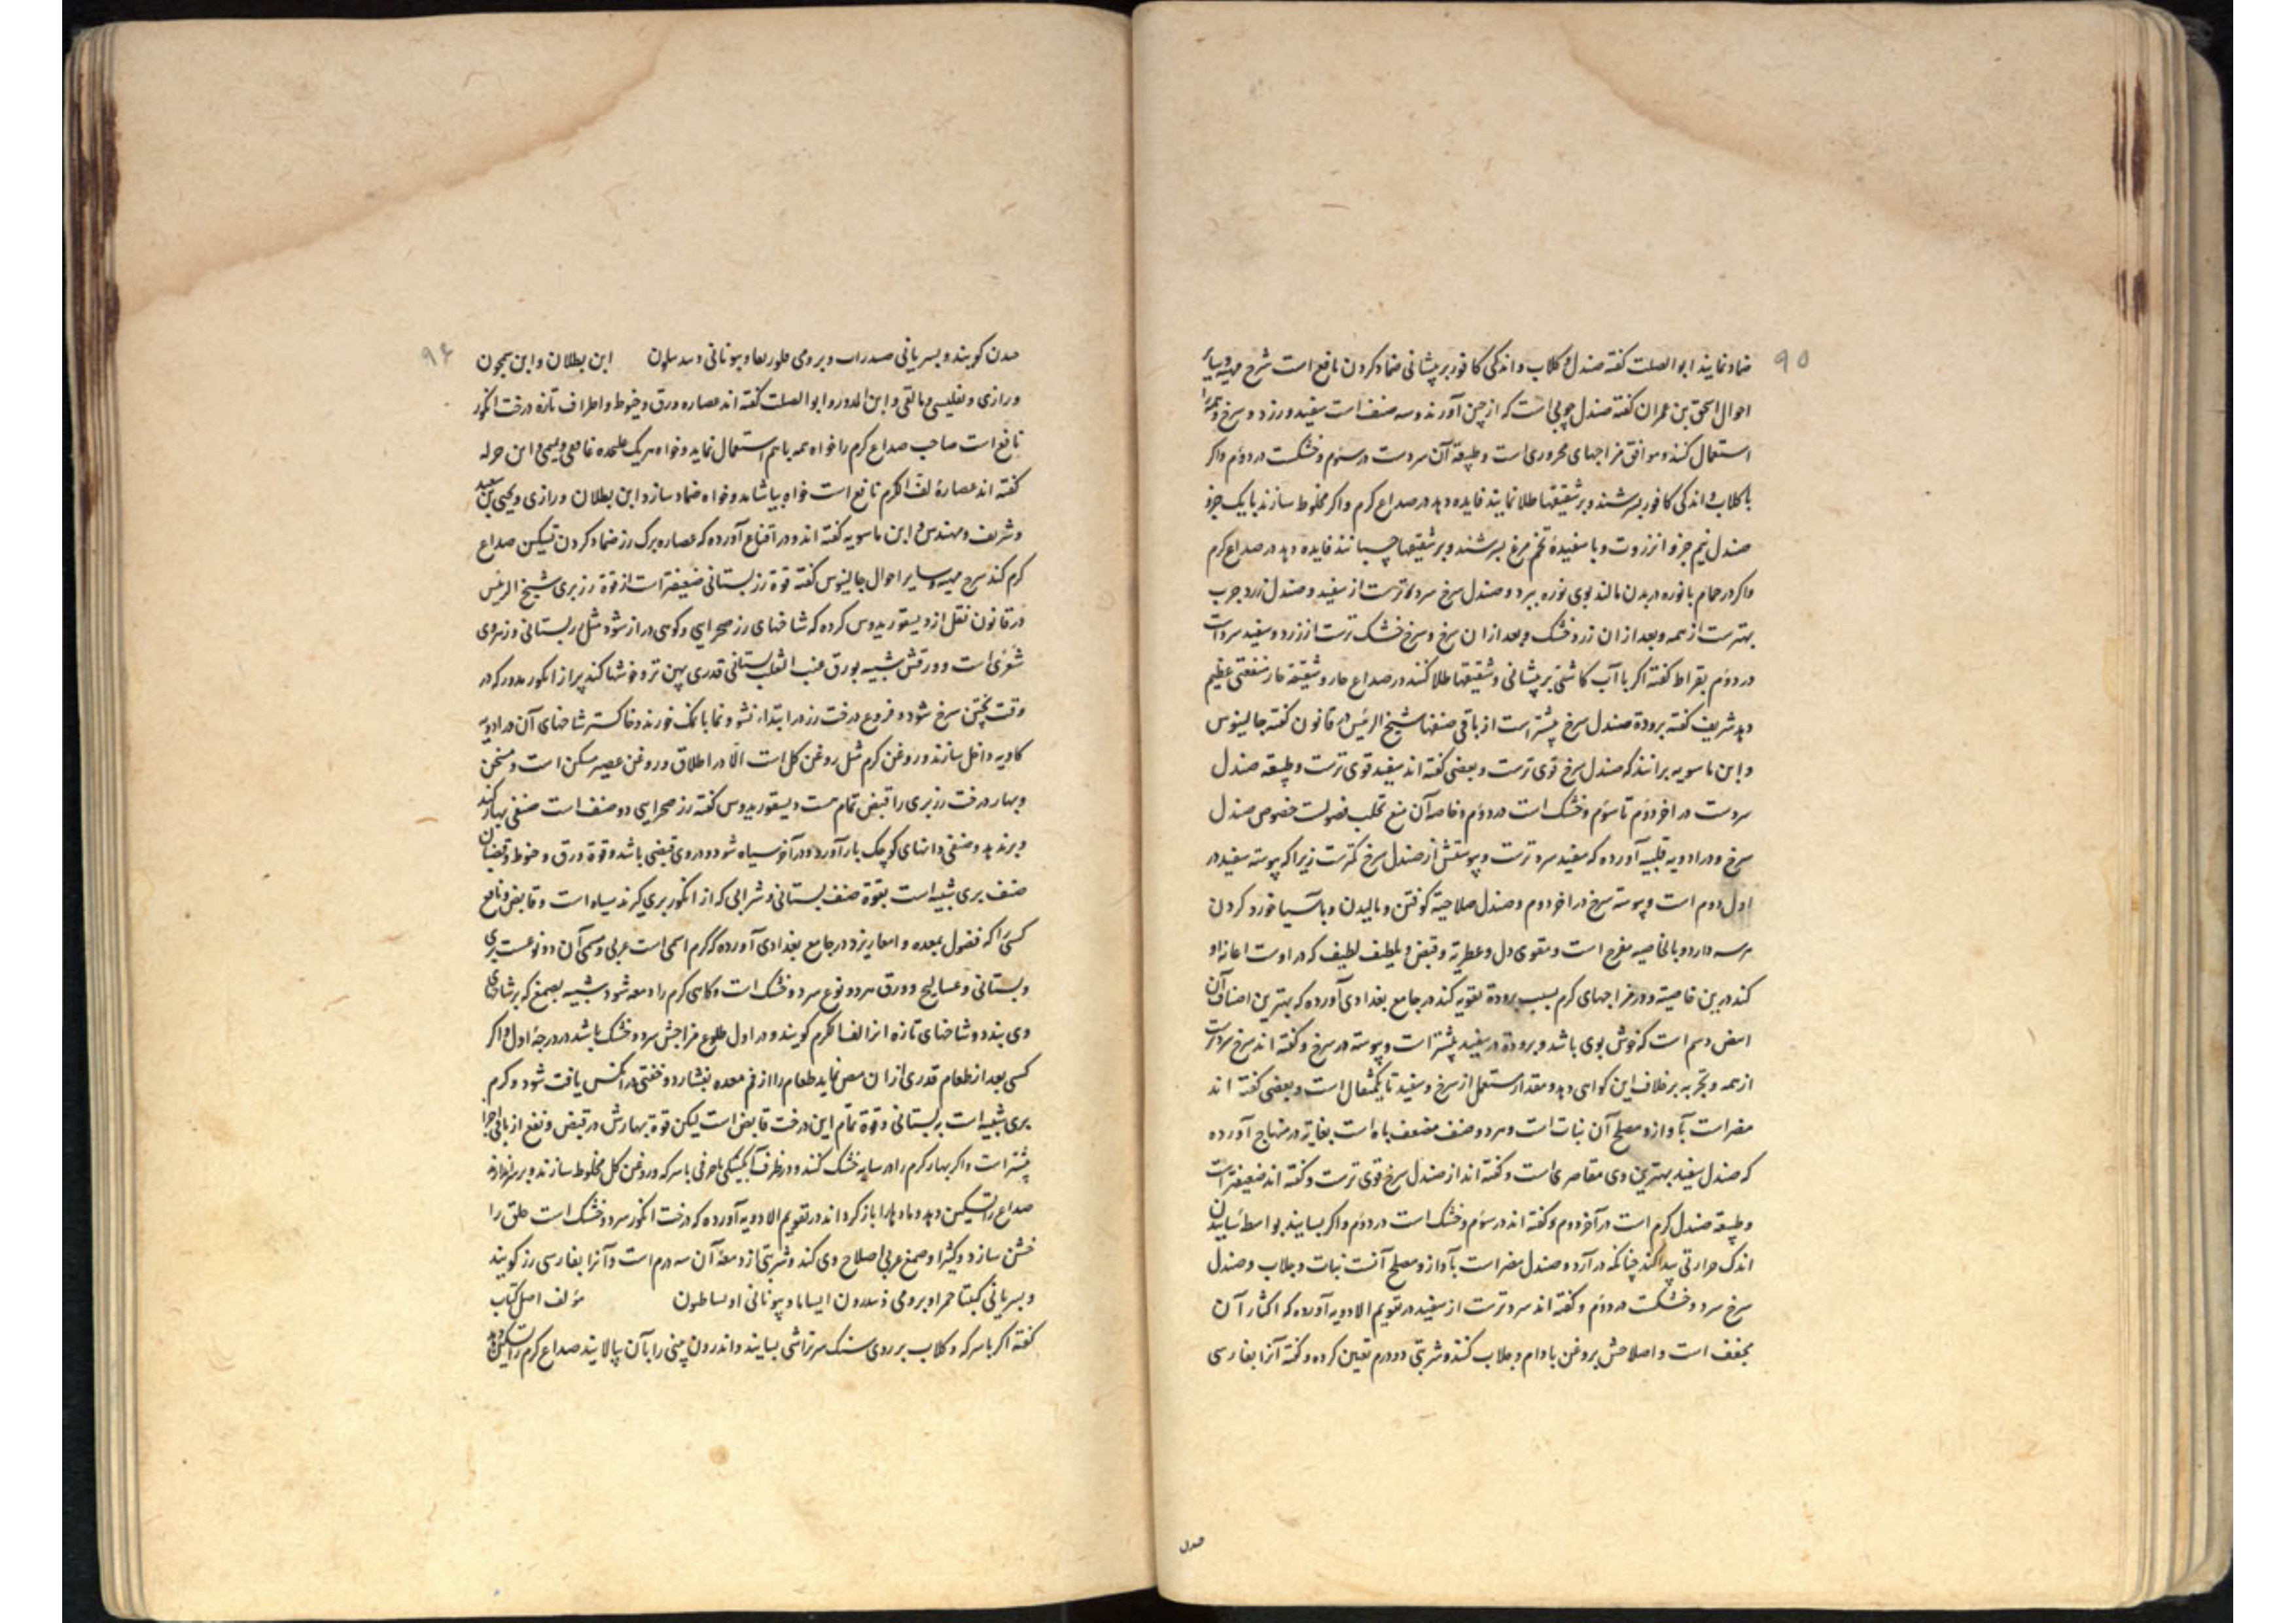 ۹۵
ضماد نمایند ابو الصلت کفته صندل و کلاب و اندکی کافور بر پیشانی ضماد کردن نافع است شرح مهیه و سایر
احوال اسحق بن عمران کفته صندل چوبی است که از چین آورند و سه صنف است سفید و زرد و سرخ و همه را
استعمال کنند و موافق مزاجهای محروری است و طبیعة آن سردست در سئوم و خشکست در دوّم و اکر
با کلاب و اندکی کافور بسرشند و بر شقیقها طلا نمایند فایده دهد در صداع کرم و اکر مخلوط سازند با یک جزو
صندل نیم جزو انزروت و با سفیدهٔ تخم مرغ بسرشند و بر شقیقها چسبانند فایده دهد در صداع کرم
و اکر در حمام با نوره در بدن مالند بوی نوره ببرد و صندل سرخ سردترست از سفید و صندل زرد چرب
بهترست از همه و بعد از ان زرد خشک و بعد از ان سرخ و سرخ خشک ترست از زرد و سفید سرد است
در دوّم بقراط کفته اکر با آب کاسنی بر پیشانی و شقیقها طلا کنند در صداع حار و شقیقه حار منفعتی عظیم
دهد شریف کفته برودة صندل سرخ بیشتر است از باقی صنفها شیخ الرئیس در قانون کفته جالینوس
و ابن ماسویه برانند که صندل سرخ قوی ترست و بعضی کفته اند سفید قوی ترست و طبیعه صندل
سردست در اخر دوّم تا سئوم و خشک است در دوّم و خاصه آن منع تحلب فضولست خصوص صندل
سرخ و در ادویه قلبیه آورده که سفید سردترست و یبوستش از صندل سرخ کمترست زیرا که یبوسته سفید در
اول دوم است و یبوسته سرخ در اخر دوم و صندل صلاحیة کوفتن و مالیدن و با آسیا خورد کردن
هر سه دارد و بالخاصیه مفرح است و مقوی دل و عطریة و قبض و تلطیف لطیف که در اوست اعانه او
کند درین خاصیة و در مزاجهای کرم بسبب برودة تقویه کند در جامع بغدادی آورده که بهترین اصناف آن
ابیض دسم است که خوش بوی باشد و برودة در سفید بیشتر است و یبوسته در سرخ و کفته اند سرخ سرد است
از همه و تجربه بر خلاف این کواهی دهد و مقدار مستعمل از سرخ و سفید تا یکمثقال است و بعضی کفته اند
مضر است بآواز و مصلح آن نبات است و هر دو صنف مضعف باه است بغایة در منهاج آورده
که صندل سفید بهترین وی مقاصری است و کفته اند از صندل سرخ قوی ترست و کفته اند ضعیفتر است
و طبیعه صندل کرم است در آخر دوم و کفته اند در سئوم و خشک است در دوّم و اکر بسایند بواسطه ساییدن
اندک حرارتی پیدا کند چنانکه در آرد و صندل مضر است بآواز و مصلح آنست نبات و جلاب و صندل
سرخ سرد و خشکست در دوّم و کفته اند سردترست از سفید در تقویم الادویه آورده که اکثار آن
مجفف است و اصلاحش بروغن بادام و جلاب کنند و شربتی دو درم تعیین کرده و کفته آنرا بفارسی
صدل
۹۶
صدن کویند و بسریانی صدراب و برومی و یونانی ابن بطلان و ابن سمجون
و رازی و تفلیسی و مالقی و ابو الصلت کفته اند عصاره ورق و خیوط و اطراف تازه درخت انکور
نافع است صاحب صداع کرم را خواه همه با هم استعمال نماید و خواه هر یک علیحده غافقی و ابن جزله
کفته اند عصارهٔ لف الکرم نافع است خواه بیاشامد و خواه ضماد سازد ابن بطلان و رازی و یحیی بن سعید
و شریف و مهندس و ابن ماسویه کفته اند و در اقناع آورده که عصاره برک رز ضماد کردن تسکین صداع
کرم کند شرح مهیه و سایر احوال جالینوس کفته قوة رز بستانی ضعیفتر است از قوة رز بری شیخ الرئیس
در قانون نقل از دیسقوریدوس کرده که شاخهای رز صحرایی و کوهی دراز شود مثل رز بستانی
شَعری است و ورقش شبیه بورق عنب الثعلب بستانی قدری پهن تر و خوشها کند پر از انکور مدور که در
وقت پختن سرخ شود و فروع درخت رز در ابتداء نشو و نما با نمک خورند و خاکستر شاخهای آن در ادویه
کاویه داخل سازند و روغن کرم مثل روغن کل است الّا در اطلاق و روغن عصیر مسکن است و مسخن
و بهار درخت رز بری را قبض تمام هست دیسقوریدوس کفته رز صحرایی دو صنف است صنفی بهار کند
و بر ندهد و صنفی دانهای کوچک بار آورد و در آخر سیاه شود و در وی قبضی باشد و قوة ورق و خیوط و قضبان
صنف بری شبیه است بقوة صنف بستانی و شرابی که از انکور بری کیرند سیاه است و قابض و نافع
کسی را که فضول بمعده و امعا ریزد در جامع بغدادی آورده که کرم اسمی است عربی و مسمی آن دو نوعست بری
و بستانی و عسالیج و ورق هر دو نوع سرد و خشک است و کاهی کرم را دمعه شود شبیه بصمغ که بر شاخهای
وی بندد و شاخهای تازه انرا لفا لکرم کویند و در اول طلوع مزاجش سرد و خشک باشد در درجهٔ اول و اکر
کسی بعد از طعام قدری از ان مص نماید طعام را از فم معده بفشارد و خفتی در انکس یافت شود و کرم
بری شبیه است به بستانی و قوة تمام این درخت قابض است لیکن قوة بهارش در قبض و نفع از باقی اجزا
بیشتر است و اکر بهار کرم را در سایه خشک کنند و در ظرف آبکینکی یا خزفی با سرکه و روغن کل مخلوط سازند و بر سر اندازند
صداع را تسکین دهد و مادها را باز کرداند در تقویم الادویه آورده که درخت انکور سرد و خشک است حلق را
خشن سازد و کثیرا و صمغ عربی اصلاح وی کند و شربتی از دمعهٔ آن سه درم است و آنرا بفارسی رز کویند
و بسریانی کبتا حمرا و برومی و یونانی مؤلف اصل کتاب
کفته اکر با سرکه و کلاب بر روی سنک سرتراشی بسایند و اندرون بینی را بآن بیالایند صداع کرم را تسکین دهد